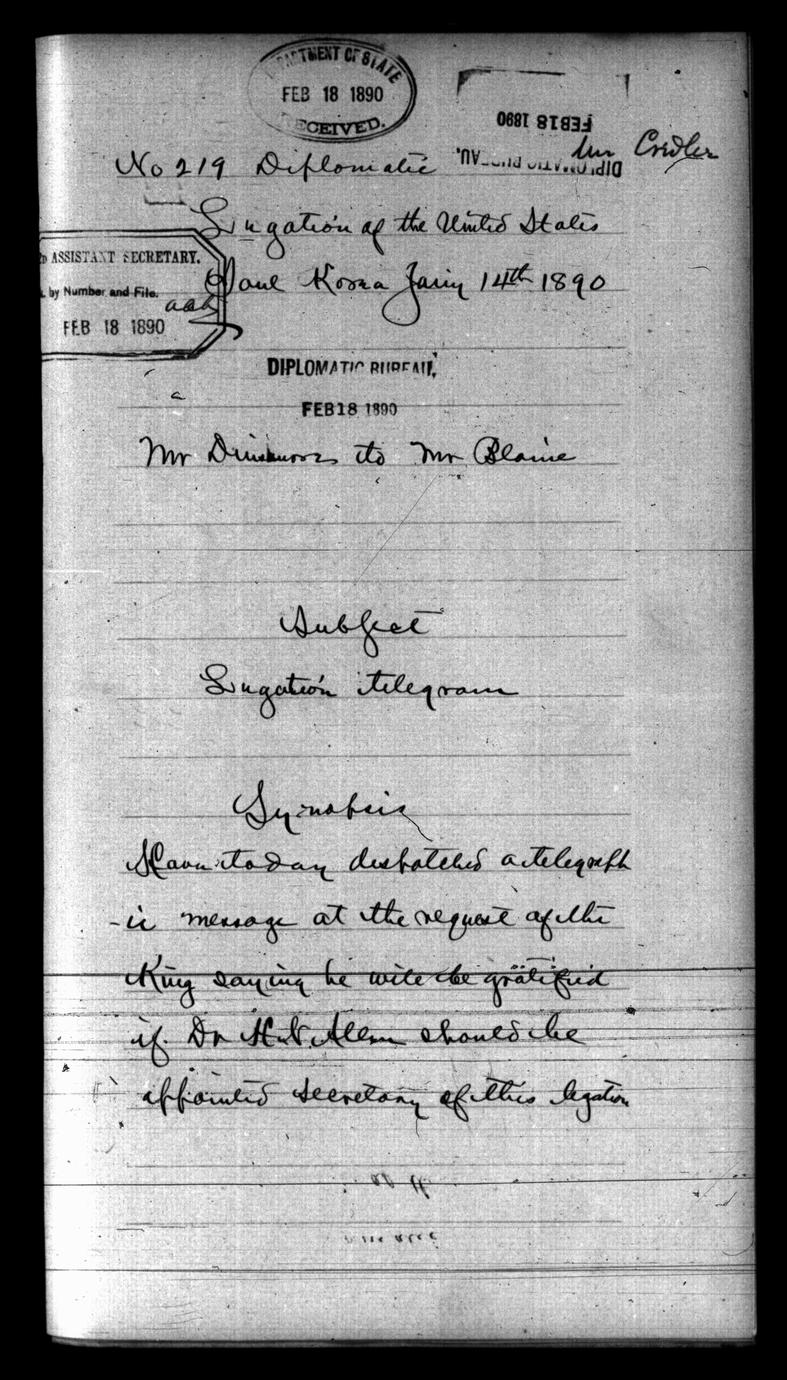 DEPARTMENT OF STATE
FEB 18 1890
RECEIVED.
DIPLOMATIC BUREAU.
FEB 18 1890
Mr Cridler
No 219 Diplomatic
Legation of the United States
Seoul Korea Jany 14th 1890
ASSISTANT SECRETARY.
by Number and File.
FEB 18 1890
DIPLOMATIC BUREAU,
FEB 18 1890
Mr Dinsmore to Mr Blaine
Subject
Legation telegram
Synopsis
Have today despatched a telegraph
-ic message at the request of the
King saying he will be gratified
if Dr H N Allen should be
appointed Secretary of this legation